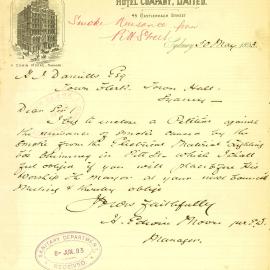 HOTEL COMPANY, LIMITED.
45 CASTLEREAGH STREET
Smoke Nuisance from
Pitt Street
Sydney 30 May 1893
H. J. Daniells Esq
Town Clerk Town Hall
Sydney
Dear Sir
I beg to enclose a Petition against
the nuisance of smoke caused by the
smoke from the Electrical
Chimney in Pitt St. which I shall
feel obliged if you will place before His
Worship the Mayor at your next Council
Meeting & thereby oblige
Yours Faithfully
Manager.
SANITARY DEPARTMENT
8 - JUN. 93
RECEIVED